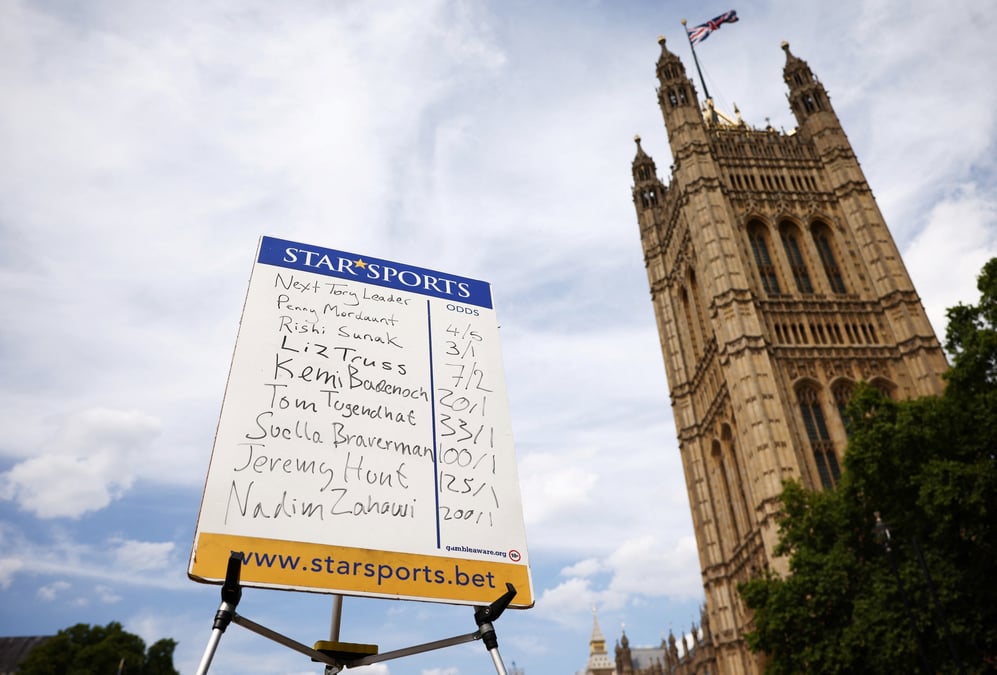 STAR★SPORTS
Next Tory Leader ODDS
Penny Mordaunt 4/5
Rishi Sunak 3/1
Liz Truss 7/2
Kemi Badenoch 20/1
Tom Tugendhat 33/1
Suella Braverman 100/1
Jeremy Hunt 125/1
Nadim Zahawi 200/1
gambleaware.org 18+
www.starsports.bet